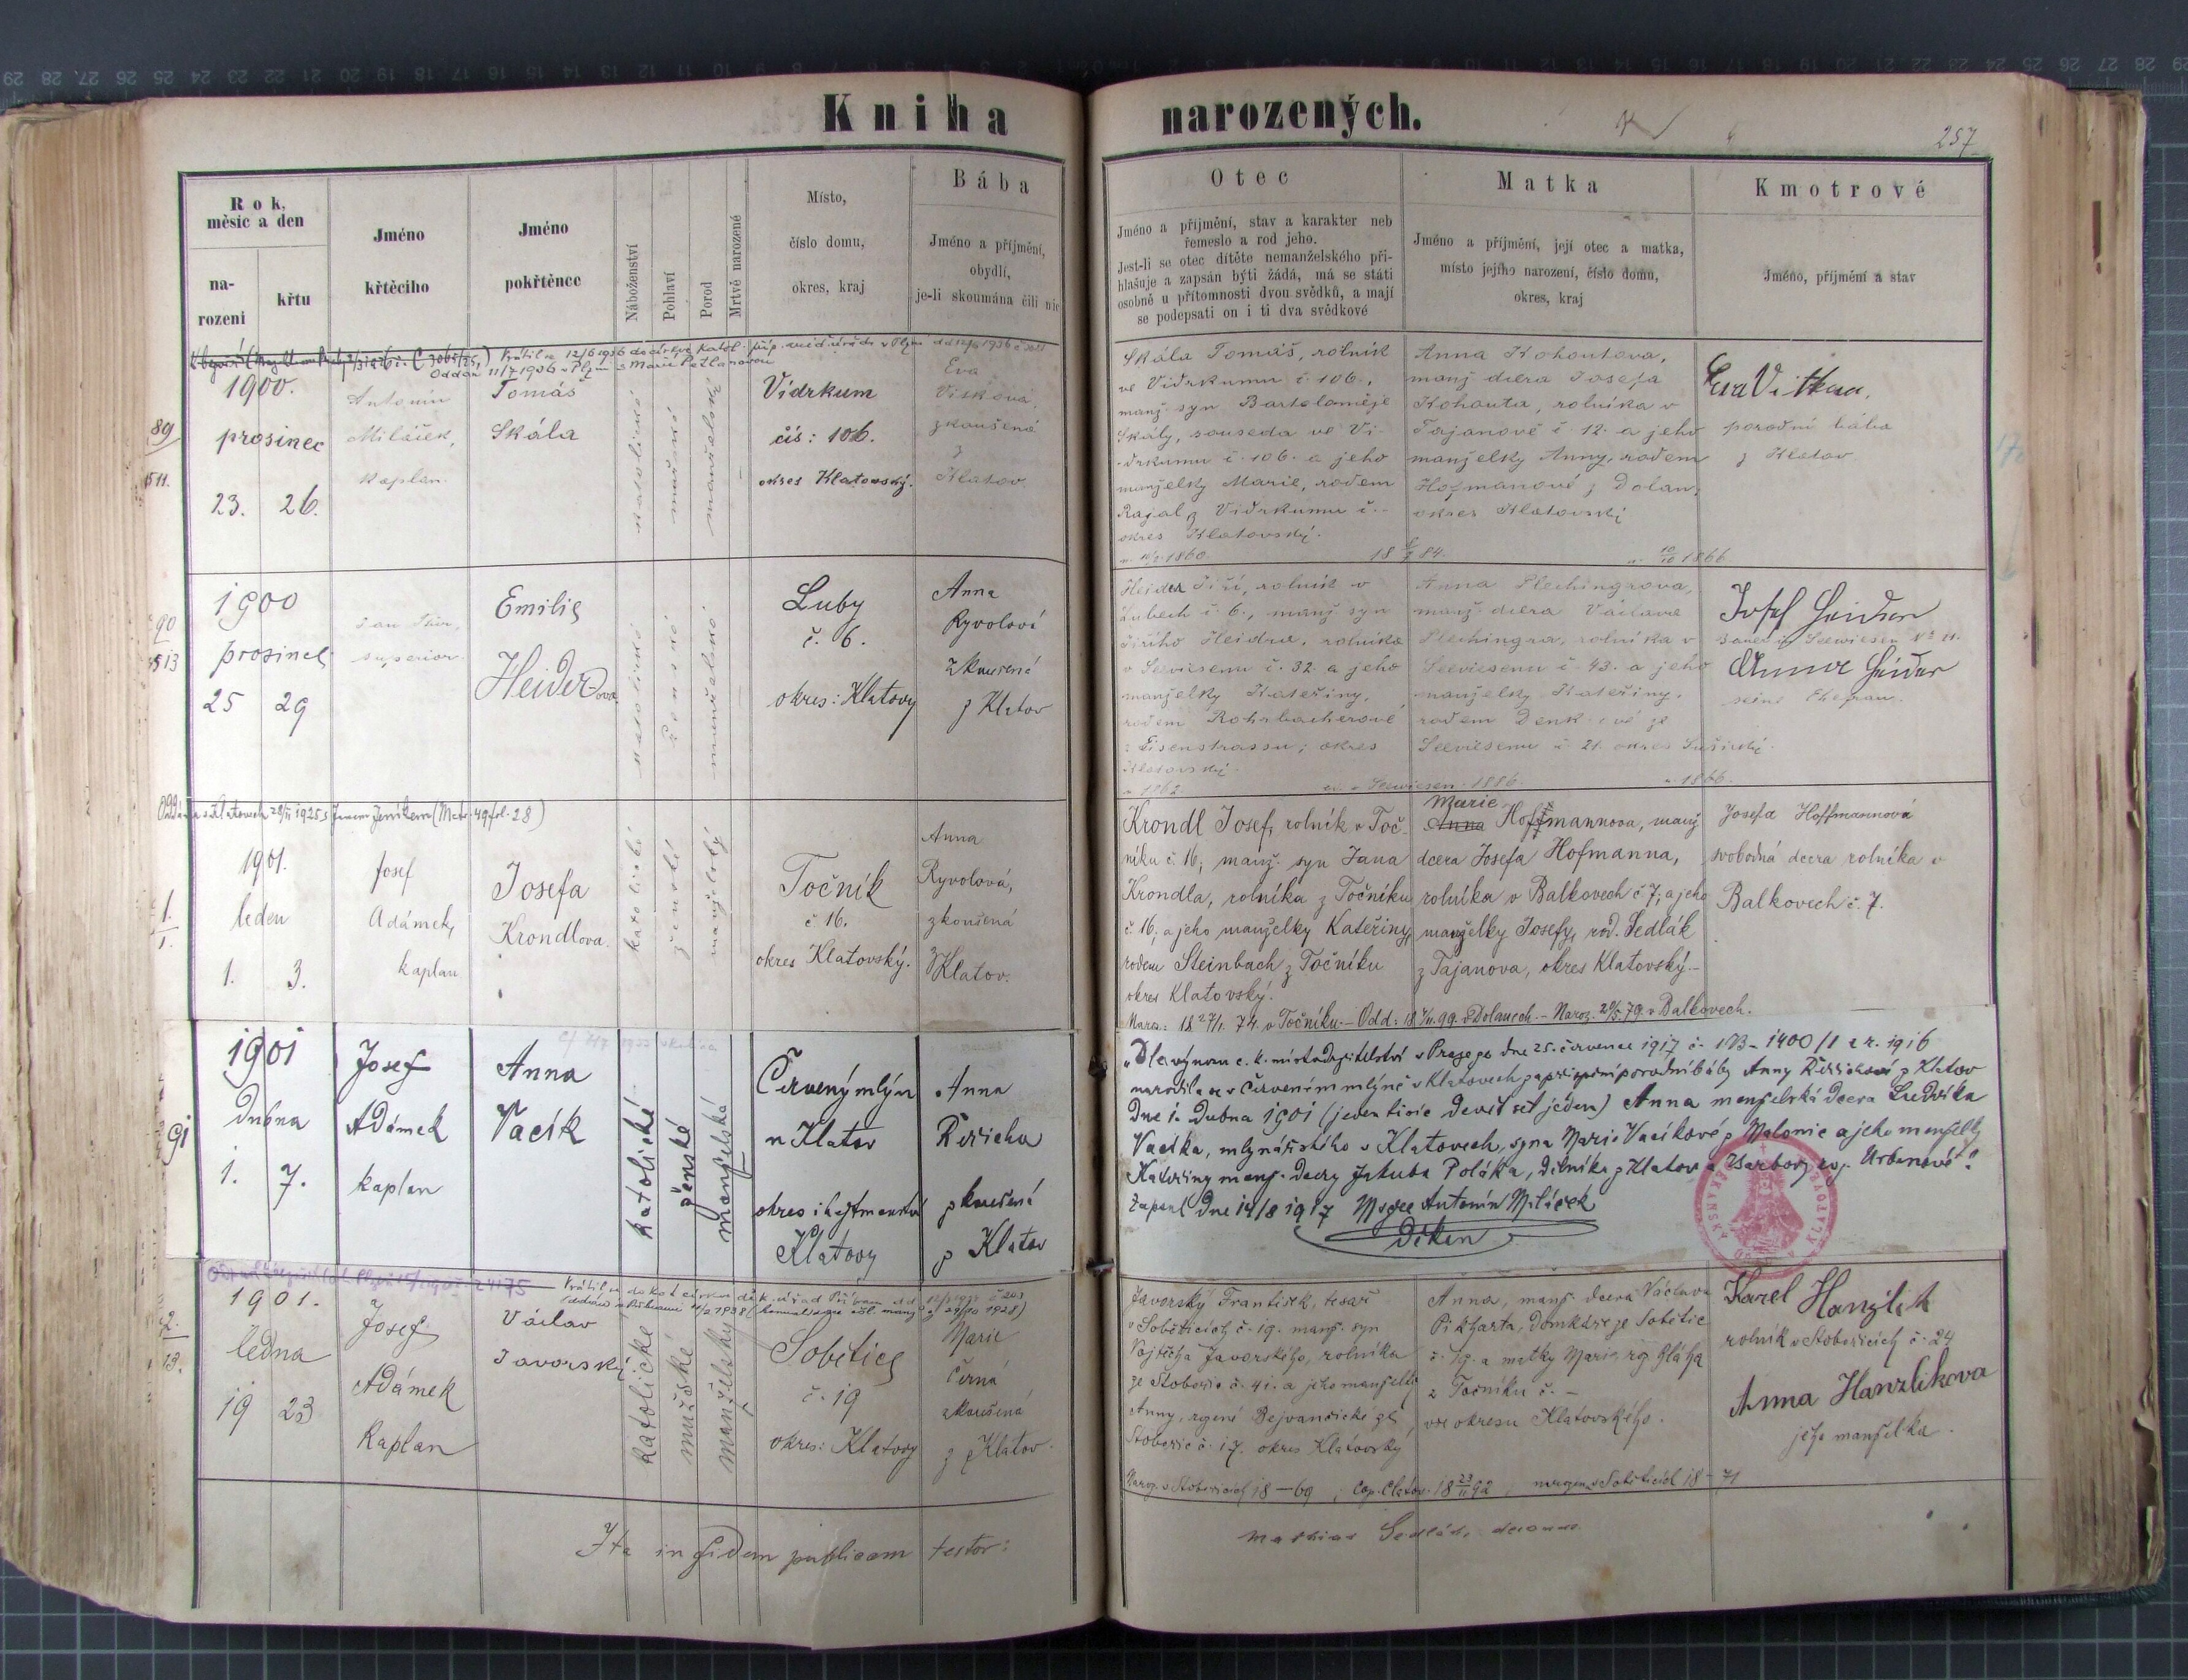 Kniha narozených.
257
Rok,
měsíc a den
na-
rozeni
křtu
Jméno
křtěcího
Jméno
pokřtěnce
Náboženství
Pohlaví
Porod
Mrtvě narozené
Místo,
číslo domu,
okres, kraj
Bába
Jméno a příjmění,
obydlí,
je-li skoumána čili nic
Otec
Jméno a příjmění, stav a karakter neb
řemeslo a rod jeho.
Jest-li se otec dítěte nemanželského při-
hlašuje a zapsán býti žádá, má se státi
osobně u přítomnosti dvou svědků, a mají
se podepsati on i ti dva svědkové
Matka
Jméno a příjmění, její otec a matka,
místo jejího narození, číslo domu,
okres, kraj
Kmotrové
Jméno, příjmění a stav
Vrátil se 12/6 1936 do církve katol.
Oddán 11/7 1936 v Plzni s Marií
89
1900.
prosinec
23. 26.
Antonín
Miláček,
kaplan.
Tomáš
Skála
katolické
mužské
manželské
Vídrkum
čís: 106.
okres Klatovský.
Eva
Vitková,
zkoušená
z
Klatov.
Skála Tomáš, rolník
ve Vidrkumu č. 106.,
manž. syn Bartoloměje
Skály, souseda ve Vi-
drkumu č. 106. a jeho
manželky Marie, rodem
Rajal z Vidrkumu č. -
okres Klatovský.
1860.
84.
Anna Kohoutova,
manž. dcera Josefa
Kohouta, rolníka v
Tajanově č. 12. a jeho
manželky Anny, rodem
Hofmanové z Dolan,
okres Klatovský
1866
Eva Vitkova,
porodní bába
z Klatov
90
1900
prosinec
25 29
superior.
Emilie
Heiderova
katolické
ženské
manželské
Luby
č. 6.
okres: Klatovy
Anna
Ryvolová
zkoušená
z Klatov
Heider Jiří, rolník v
Lubech č. 6., manž. syn
Jiřího Heidra, rolníka
v Seeviesenu č. 32. a jeho
manželky Kateřiny,
rodem Rohrbacherové
z Eisenstrassu; okres
Klatovský.
1862
v Seewiesen. 1886.
Anna Plechingrova,
manž. dcera Václava
Plechingra, rolníka v
Seeviesenu č. 43. a jeho
manželky Kateřiny,
rodem Denkové ze
Seeviesenu č. 21. okres Sušický.
1866.
Josef Heider
Bauer in Seewiesen No 11.
Anna Heider
seine Ehefrau.
Oddána v Klatovech 1925 s Janem Jeníkem (Matr. 49 fol. 28)
1.
1.
1901.
leden
1. 3.
Josef
Adámek,
kaplan
Josefa
Krondlova.
katolické
ženské
manželský
Točník
č 16.
okres Klatovský.
Anna
Ryvolová,
zkoušená
z Klatov.
Krondl Josef, rolník v Toč-
níku č. 16, manž. syn Jana
Krondla, rolníka z Točníku
č. 16, a jeho manželky Kateřiny,
rodem Steinbach z Točníku
okres Klatovský.
Marie
Anna Hoffmannova, manž
dcera Josefa Hofmanna,
rolníka v Balkovech č. 7, a jeho
manželky Josefy, rod. Sedlák
z Tajanova, okres Klatovský.-
Naro.: 18 27/1. 74. v Točníku.- Odd: 99. v Dolanech.- Naroz. 79. v Balkovech.
Josefa Hoffmannová
svobodná dcera rolníka v
Balkovech č. 7.
91
1901
dubna
1. 7.
Josef
Adámek
kaplan
Anna
Vacík
katolické
ženské
manželská
Červený mlýn
u Klatov
okres i hejtmanství
Klatovy
Anna
Řeřicha
zkoušená
z Klatov
„Dle výnosu c. k. místodržitelství v Praze ze dne 25. července 1917 č. 17B-1400/1 z r. 1916
narodila se v Červeném mlýně v Klatovech za přispění porodní báby Anny Řeřichové z Klatov
dne 1. dubna 1901 (jeden tisíc devět set jeden) Anna manželská dcera Ludvíka
Vacíka, mlynářského v Klatovech, syna Marie Vacíkové z Malonic a jeho manželky
Kateřiny manž. dcery Jakuba Poláka, dělníka z Klatov a Barbory roz. Urbanové".
Zapsal dne 14/8 1917 Msgre Antonín Miláček
děkan
2.
13.
1901.
ledna
19 23
Josef
Adámek
Kaplan
Václav
Javorský
katolické
mužské
manželský
Sobětice
č. 19
okres: Klatovy
Marie
Černá
zkoušená
z Klatov.
Javorský František, tesař
v Soběticích č. 19. manž. syn
Vojtěcha Javorského, rolníka
ze Stobořic č. 41. a jeho manželky
Anny, rozené Bejvančické ze
Stobořic č. 17. okres Klatovský
Naroz. v Stobořicích 18-69 ; Cop. Clatov. 18 23/11 92
Anna, manž. dcera Václava
Pikharta, domkáře ze Sobětic
č. 19. a matky Marie, rz. Bláha
z Točníku č. -
vše okresu Klatovského.
narozena v Soběticích 18-71
Karel Hanzlik
rolník v Stobořicích č. 24
Anna Hanzlikova
jeho manželka.
Ita in fidem publicam testor:
Mathias Sedlák, decanus